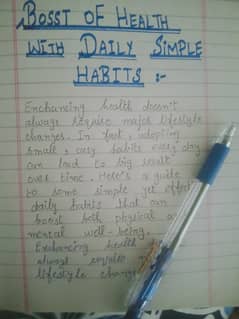 BOSST OF HEALTH
WITH DAILY SIMPLE
HABITS :-
Enchancing health doesn't
always require major lifestyle
changes. In fact, adopting
small, easy habits every day
can lead to big result
over time. Here's a guide
to some simple yet effecti
daily habits that can
boost both physical a
mental well-being.
Enhancing health
always
lifestyle chang